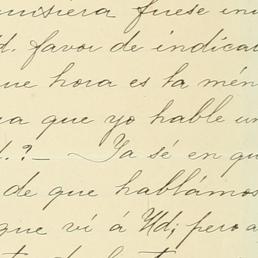 quisiera fuese in
d. favor de indica
ue hora es la mén
a que yo hable un
d.?— Ya sé en qu
de que hablámos
que ví á Ud; pero a